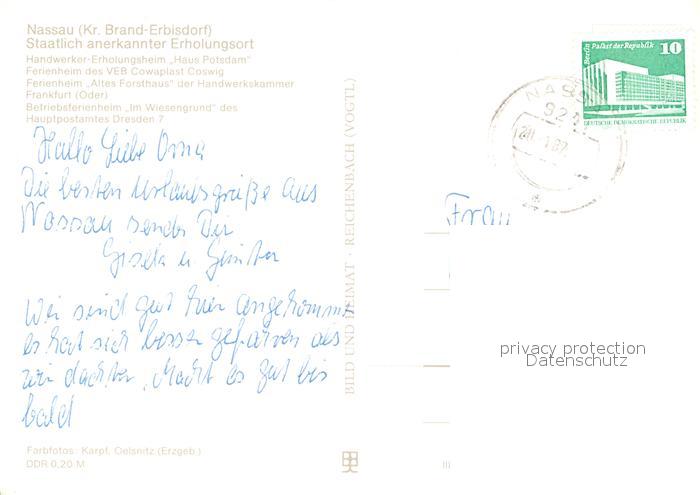 Nassau (Kr. Brand-Erbisdorf)
Staatlich anerkannter Erholungsort
Handwerker-Erholungsheim „Haus Potsdam"
Ferienheim des VEB Cowaplast Coswig
Ferienheim „Altes Forsthaus" der Handwerkskammer
Frankfurt (Oder)
Betriebsferienheim „Im Wiesengrund" des
Hauptpostamtes Dresden 7
Hallo Liebe Oma
Die besten Urlaubsgrüße aus
Nassau sendet Dir
Gisela u Günter
Wir sind gut hier angekommen
es hat sich besser gefahren als
wir dachten. Macht es gut bis
bald
Farbfotos: Karpf, Oelsnitz (Erzgeb.)
DDR 0,20 M
BILD UND HEIMAT · REICHENBACH (VOGTL)
Berlin Palast der Republik 10
DEUTSCHE DEMOKRATISCHE REPUBLIK
NASSAU
Frau
privacy protection
Datenschutz